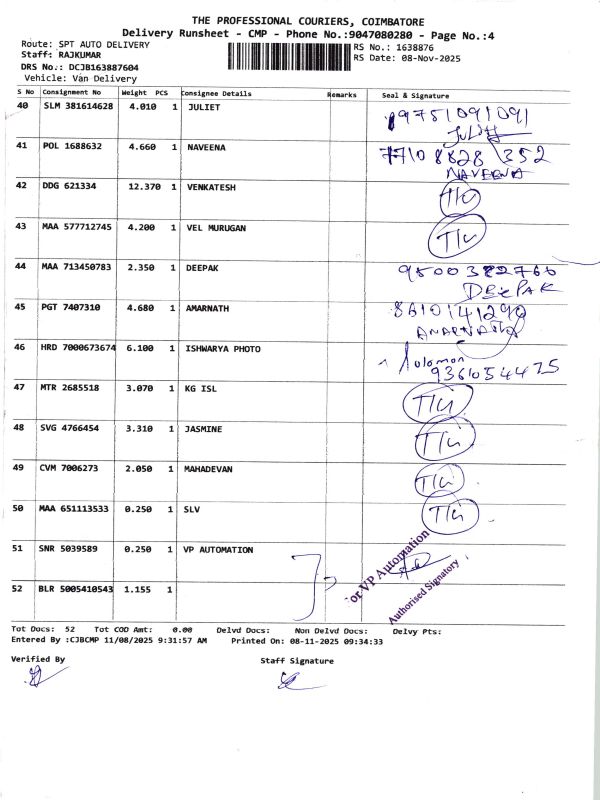 THE PROFESSIONAL COURIERS, COIMBATORE
Delivery Runsheet - CMP - Phone No.:9047080280 - Page No.:4
Route: SPT AUTO DELIVERY
Staff: RAJKUMAR
DRS No.: DCJB163887604
Vehicle: Van Delivery
RS No.: 1638876
RS Date: 08-Nov-2025
S No Consignment No Weight PCS Consignee Details Remarks Seal & Signature
40 SLM 381614628 4.010 1 JULIET 9751091091
JULIET
41 POL 1688632 4.660 1 NAVEENA 7710 8828 352
NAVEENA
42 DDG 621334 12.370 1 VENKATESH
43 MAA 577712745 4.200 1 VEL MURUGAN
44 MAA 713450783 2.350 1 DEEPAK 9500382766
DEEPAK
45 PGT 7407310 4.680 1 AMARNATH 8610141290
46 HRD 7000673674 6.100 1 ISHWARYA PHOTO Solomon
9361054475
47 MTR 2685518 3.070 1 KG ISL
48 SVG 4766454 3.310 1 JASMINE
49 CVM 7006273 2.050 1 MAHADEVAN
50 MAA 651113533 0.250 1 SLV
51 SNR 5039589 0.250 1 VP AUTOMATION
or VP Automation
Authorised Signatory
52 BLR 5005410543 1.155 1
Tot Docs: 52 Tot COD Amt: 0.00 Delvd Docs: Non Delvd Docs: Delvy Pts:
Entered By :CJBCMP 11/08/2025 9:31:57 AM Printed On: 08-11-2025 09:34:33
Verified By Staff Signature